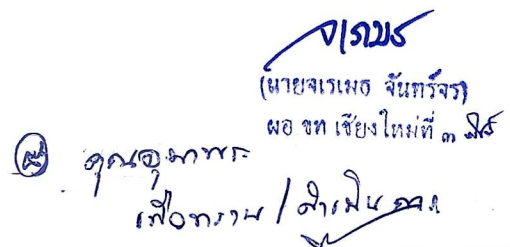 (นายจเรเมธ จันทร์จร)
ผอ ขท เชียงใหม่ที่ ๓
คุณอุมาพร
เพื่อทราบ / ดำเนินการ